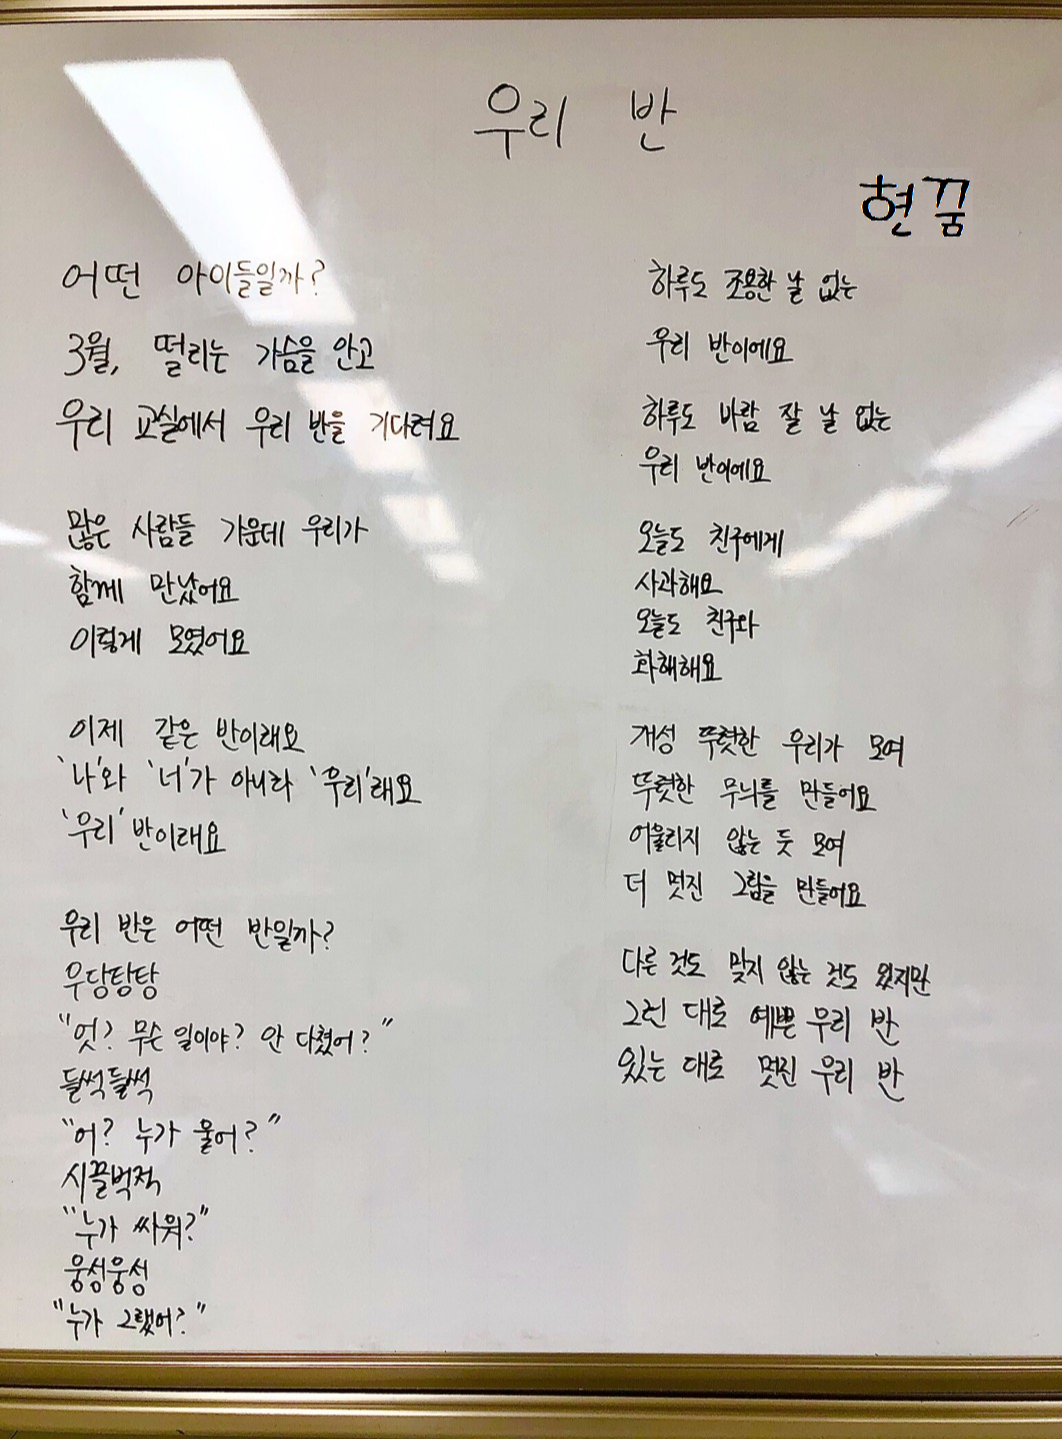 우리 반
현꿈
어떤 아이들일까?
3월, 떨리는 가슴을 안고
우리 교실에서 우리 반을 기다려요
많은 사람들 가운데 우리가
함께 만났어요
이렇게 모였어요
이제 같은 반이래요
'나'와 '너'가 아니라 '우리'래요
'우리' 반이래요
우리 반은 어떤 반일까?
우당탕탕
"엇? 무슨 일이야? 안 다쳤어?"
들썩들썩
"어? 누가 울어?"
시끌벅적
"누가 싸워?"
웅성웅성
"누가 그랬어?"
하루도 조용한 날 없는
우리 반이에요
하루도 바람 잘 날 없는
우리 반이에요
오늘도 친구에게
사과해요
오늘도 친구와
화해해요
개성 뚜렷한 우리가 모여
뚜렷한 무늬를 만들어요
어울리지 않는 듯 모여
더 멋진 그림을 만들어요
다른 것도 맞지 않는 것도 있지만
그런 대로 예쁜 우리 반
있는 대로 멋진 우리 반